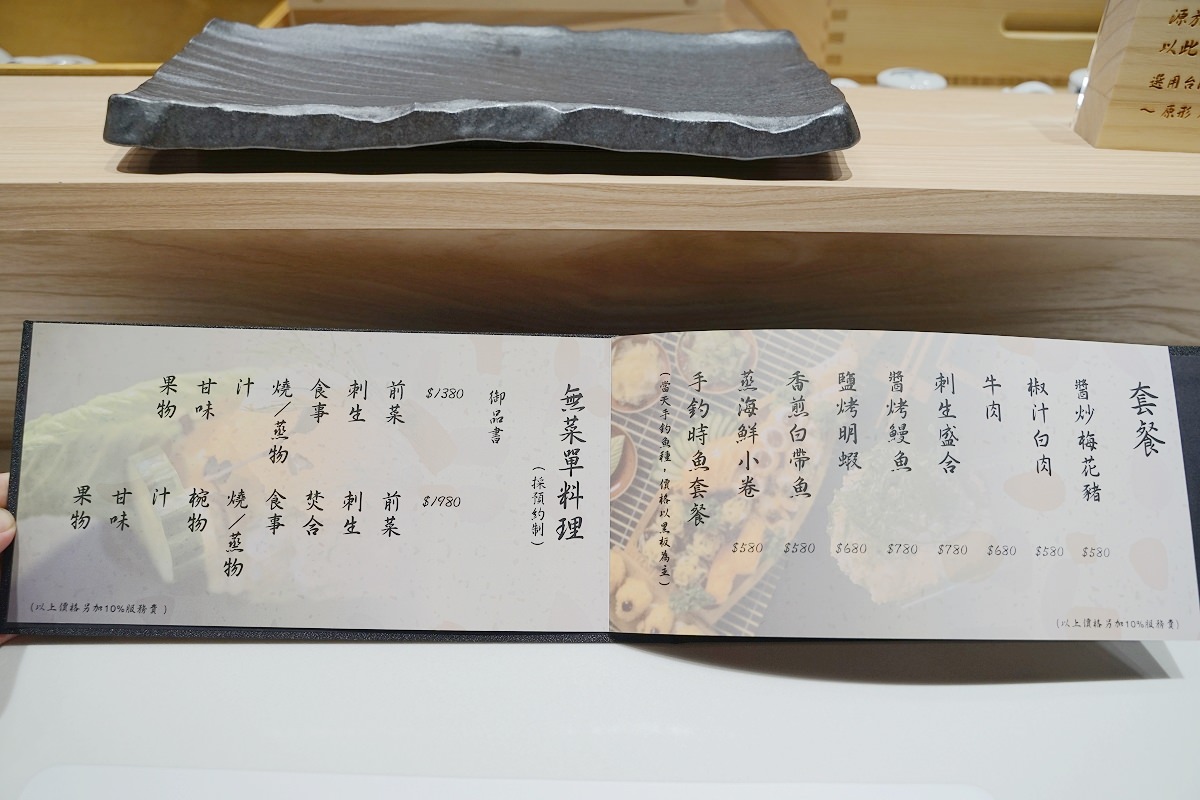 源於
以此
選用台
~ 原形
套餐
醬炒梅花豬 $580
椒汁白肉 $580
牛肉 $680
刺生盛合 $780
醬烤鰻魚 $780
鹽烤明蝦 $680
香煎白帶魚 $580
蒸海鮮小卷 $580
手釣時魚套餐
(當天手釣魚種，價格以黑板為主)
(以上價格另加10%服務費)
無菜單料理
(採預約制)
御品書
$1380
前菜
刺生
食事
燒/蒸物
汁
甘味
果物
$1980
前菜
刺生
焚合
食事
燒/蒸物
椀物
汁
甘味
果物
(以上價格另加10%服務費)